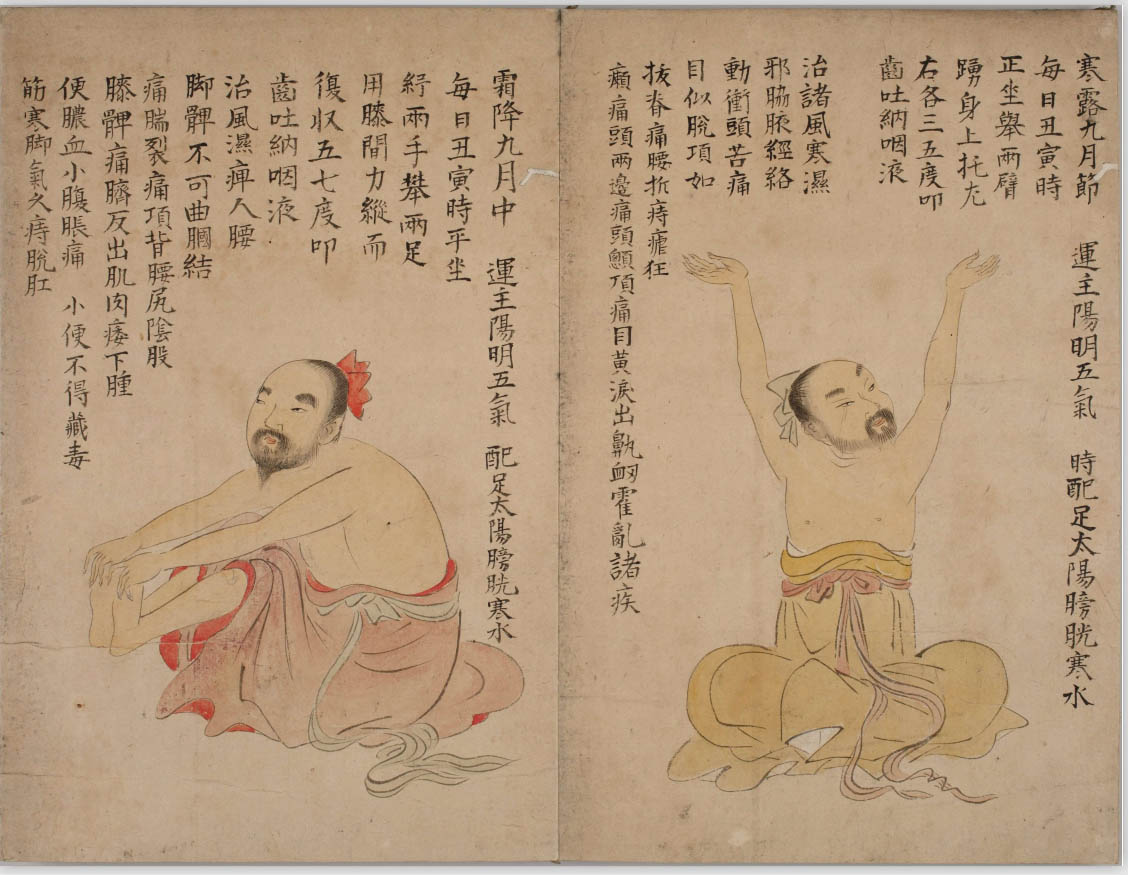 寒露九月節　運主陽明五氣　時配足太陽膀胱寒水
每日丑寅時
正坐舉兩臂
踴身上托左
右各三五度叩
齒吐納咽液
治諸風寒濕
邪脇腋經絡
動衝頭苦痛
目似脫項如
拔脊痛腰折痔瘧狂
癲痛頭兩邊痛頭顖頂痛目黃淚出鼽衂霍亂諸疾
霜降九月中　運主陽明五氣　配足太陽膀胱寒水
每日丑寅時平坐
紓兩手攀兩足
用膝間力縱而
復収五七度叩
齒吐納咽液
治風濕痺人腰
脚髀不可曲膕結
痛腨裂痛頂背腰尻陰股
膝髀痛臍反出肌肉痿下腫
便膿血小腹脹痛　小便不得藏毒
筋寒脚氣久痔脫肛